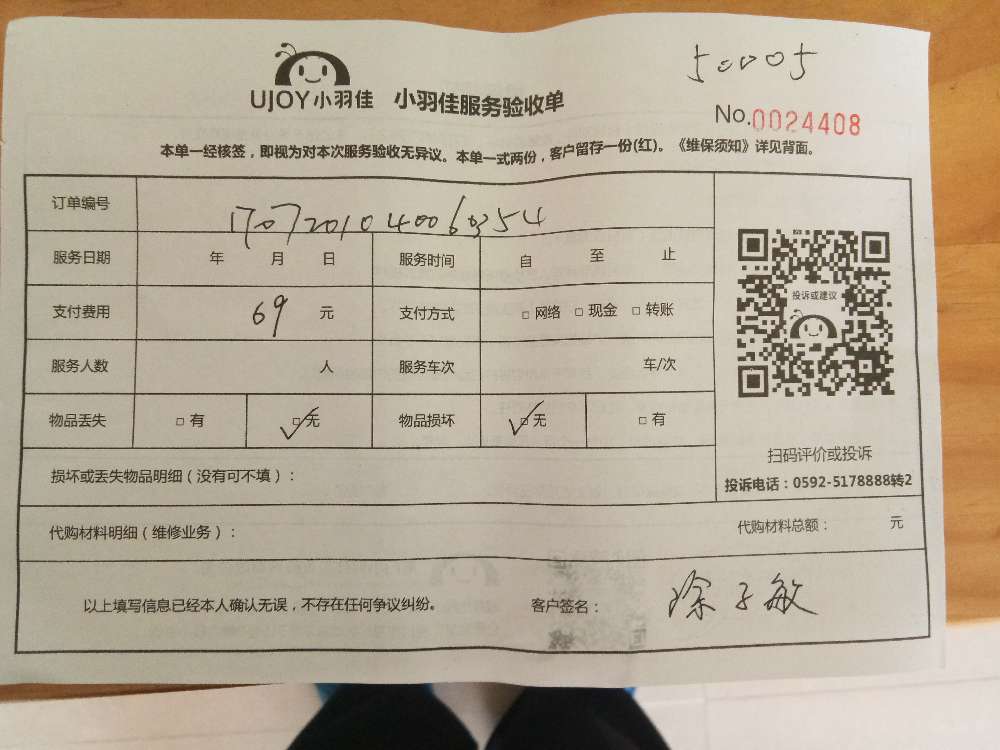 50005
UJOY小羽佳 小羽佳服务验收单
No.0024408
本单一经核签，即视为对本次服务验收无异议。本单一式两份，客户留存一份(红)。《维保须知》详见背面。
订单编号 170720104006354
服务日期 年 月 日 服务时间 自 至 止
支付费用 69 元 支付方式 □ 网络 □ 现金 □ 转账
服务人数 人 服务车次 车/次
物品丢失 □ 有 □ 无 物品损坏 □ 无 □ 有
投诉或建议
扫码评价或投诉
投诉电话：0592-5178888转2
损坏或丢失物品明细（没有可不填）：
代购材料明细（维修业务）： 代购材料总额： 元
以上填写信息已经本人确认无误，不存在任何争议纠纷。 客户签名： 子敏